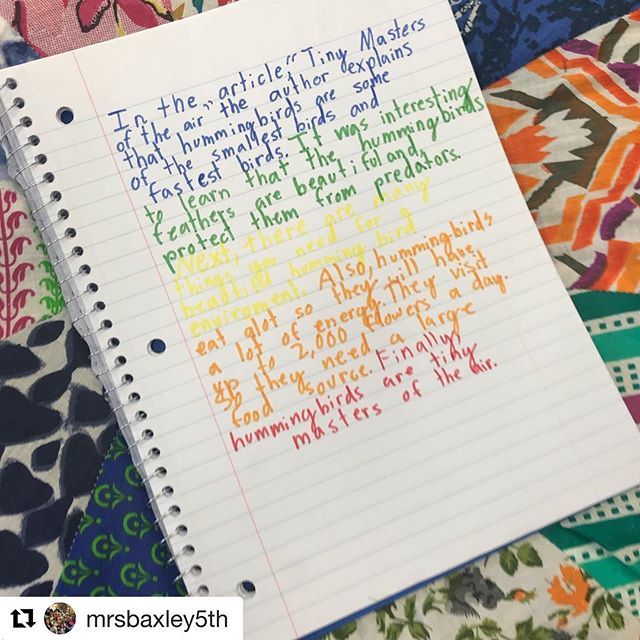 In the article, "Tiny Masters
of the air" the author explains
that hummingbirds are some
of the smallest birds and
fastest birds. It was interesting
to learn that the hummingbirds
feathers are beautiful and
protect them from predators.
Next, there are many
things you need for a
beautiful humming bird
enviroment. Also, hummingbirds
eat alot so they will have
a lot of energy. They visit
up to 2,000 flowers a day.
So they need a large
food source. Finally,
hummingbirds are tiny
masters of the air.
mrsbaxley5th